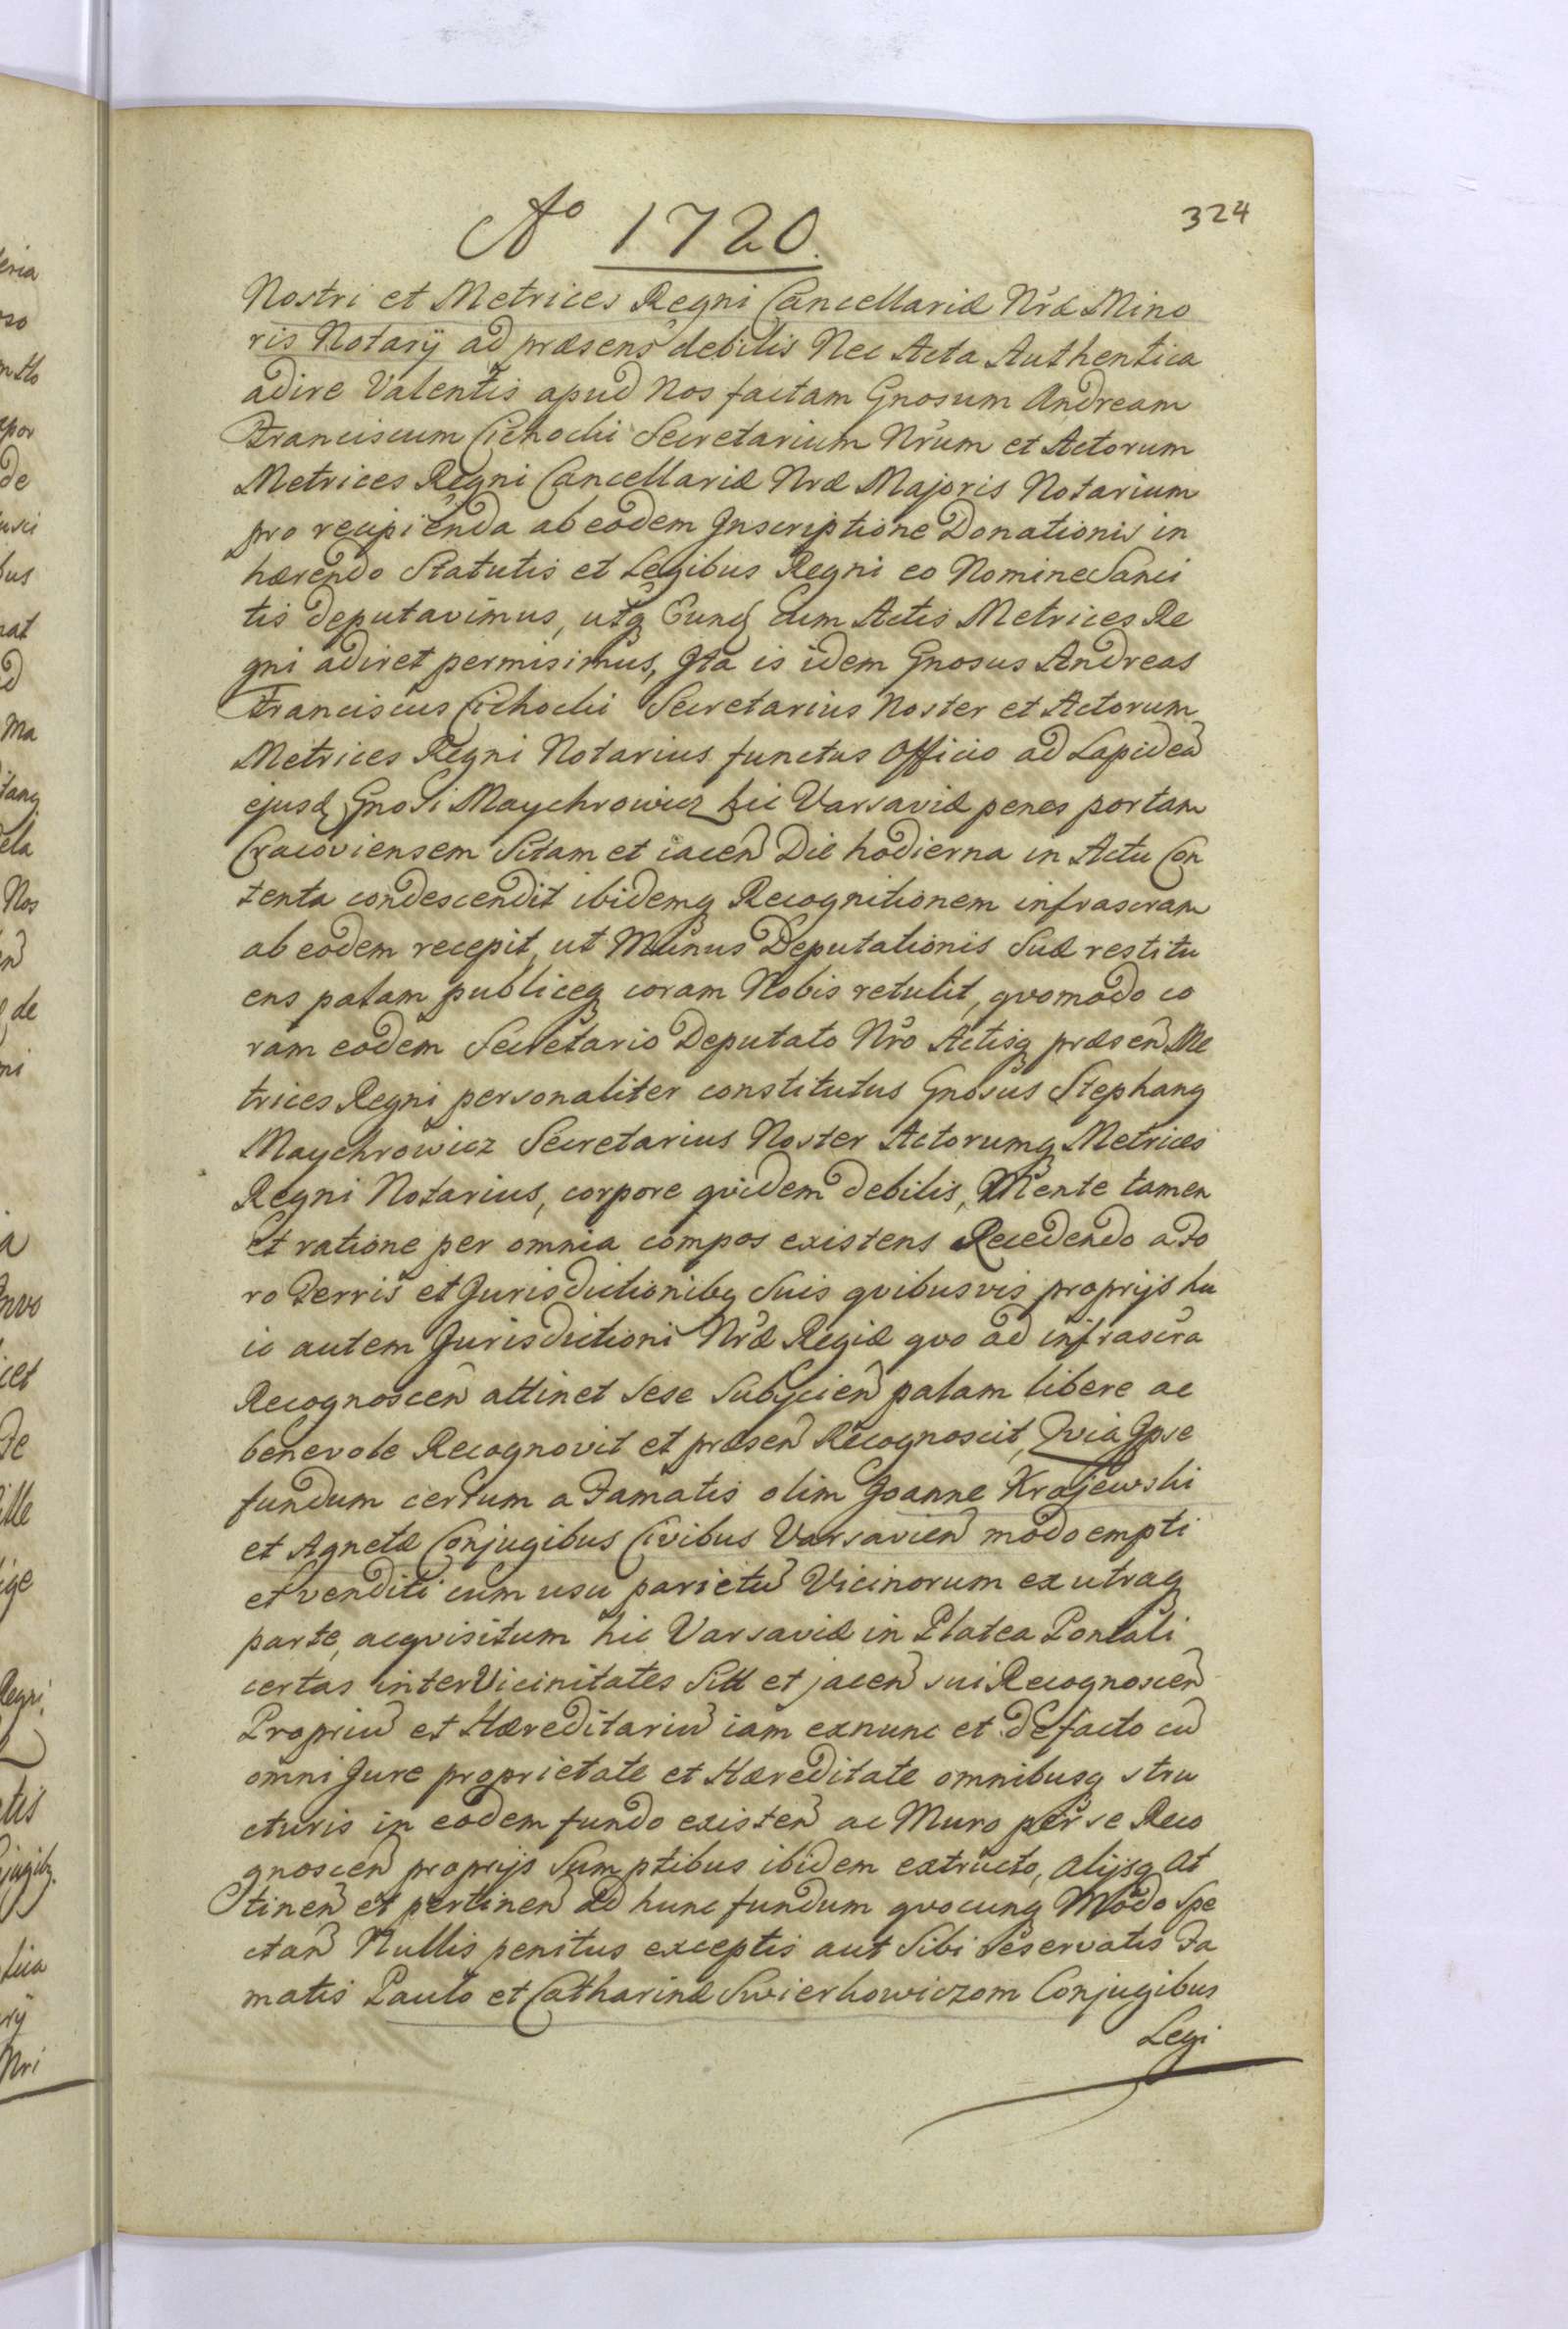 Aº 1720.
324
Nostri et Metrices Regni Cancellariæ Nræ Mino
ris Notarÿ ad præsens debilis Nec Acta Authentica
adire Valentis apud Nos factam Gnosum Andream
Franciscum Cichocki Secretarium Nrum et Actorum
Metrices Regni Cancellariæ Nræ Majoris Notarium
pro recipienda ab eodem Inscriptione Donationis in
hærendo Statutis et Legibus Regni eo Nomine Sanci
tis deputavimus, utq Eunq cum Actis Metrices Re
gni adiret permisimus, Ita is idem Gnosus Andreas
Franciscus Cichocki Secretarius Noster et Actorum
Metrices Regni Notarius functus Officio ad Lapideã
ejusd Gnosi Maychrowicz hic Varsaviæ penes portam
Cracoviensem Sitam et iacen Die hodierna in Actu Con
tenta condescendit ibidemq Recognitionem infrascram
ab eodem recepit, ut Munus Deputationis Suæ restitu
ens palam publiceq coram Nobis retulit, qvomodo co
ram eodem Secretario Deputato Nro Actisq præsen Me
trices Regni personaliter constitutus Gnosus Stephang
Maychrowicz Secretarius Noster Actorumq Metrices
Regni Notarius, corpore qvidem debilis, Mente tamen
et ratione per omnia compos existens Recedendo a Fo
ro Terris et Jurisdictionibq Suis qvibusvis proprijs hu
ic autem Jurisdictioni Nræ Regiæ qvo ad infrascra
Recognoscen attinet Sese Subijcien palam libere ac
benevole Recognovit et præsen Recognoscit, Qvia Ipse
fundum certum a Famatis olim Joanne Krajewski
et Agnetæ Conjugibus Civibus Varsavien modo empti
et venditi cum usu parietũ Vicinorum ex utraq
parte, acqvisitum hic Varsaviæ in Platea Pontali
certas inter Vicinitates Sitt et jacen sui Recognoscen
Propriũ et Hæreditariũ iam exnunc et de facto cũ
omni Jure proprietate et Hæreditate omnibusq stru
cturis in eodem fundo existen ac Muro per se Reco
gnoscen proprijs Sumptibus ibidem extructo, alijsq At
tinen et pertinen ad hunc fundum qvocunq Modo Spe
ctan Nullis penitus exceptis aut Sibi reservatis Fa
matis Paulo et Catharinæ Swierkowiczom Conjugibus
Legi